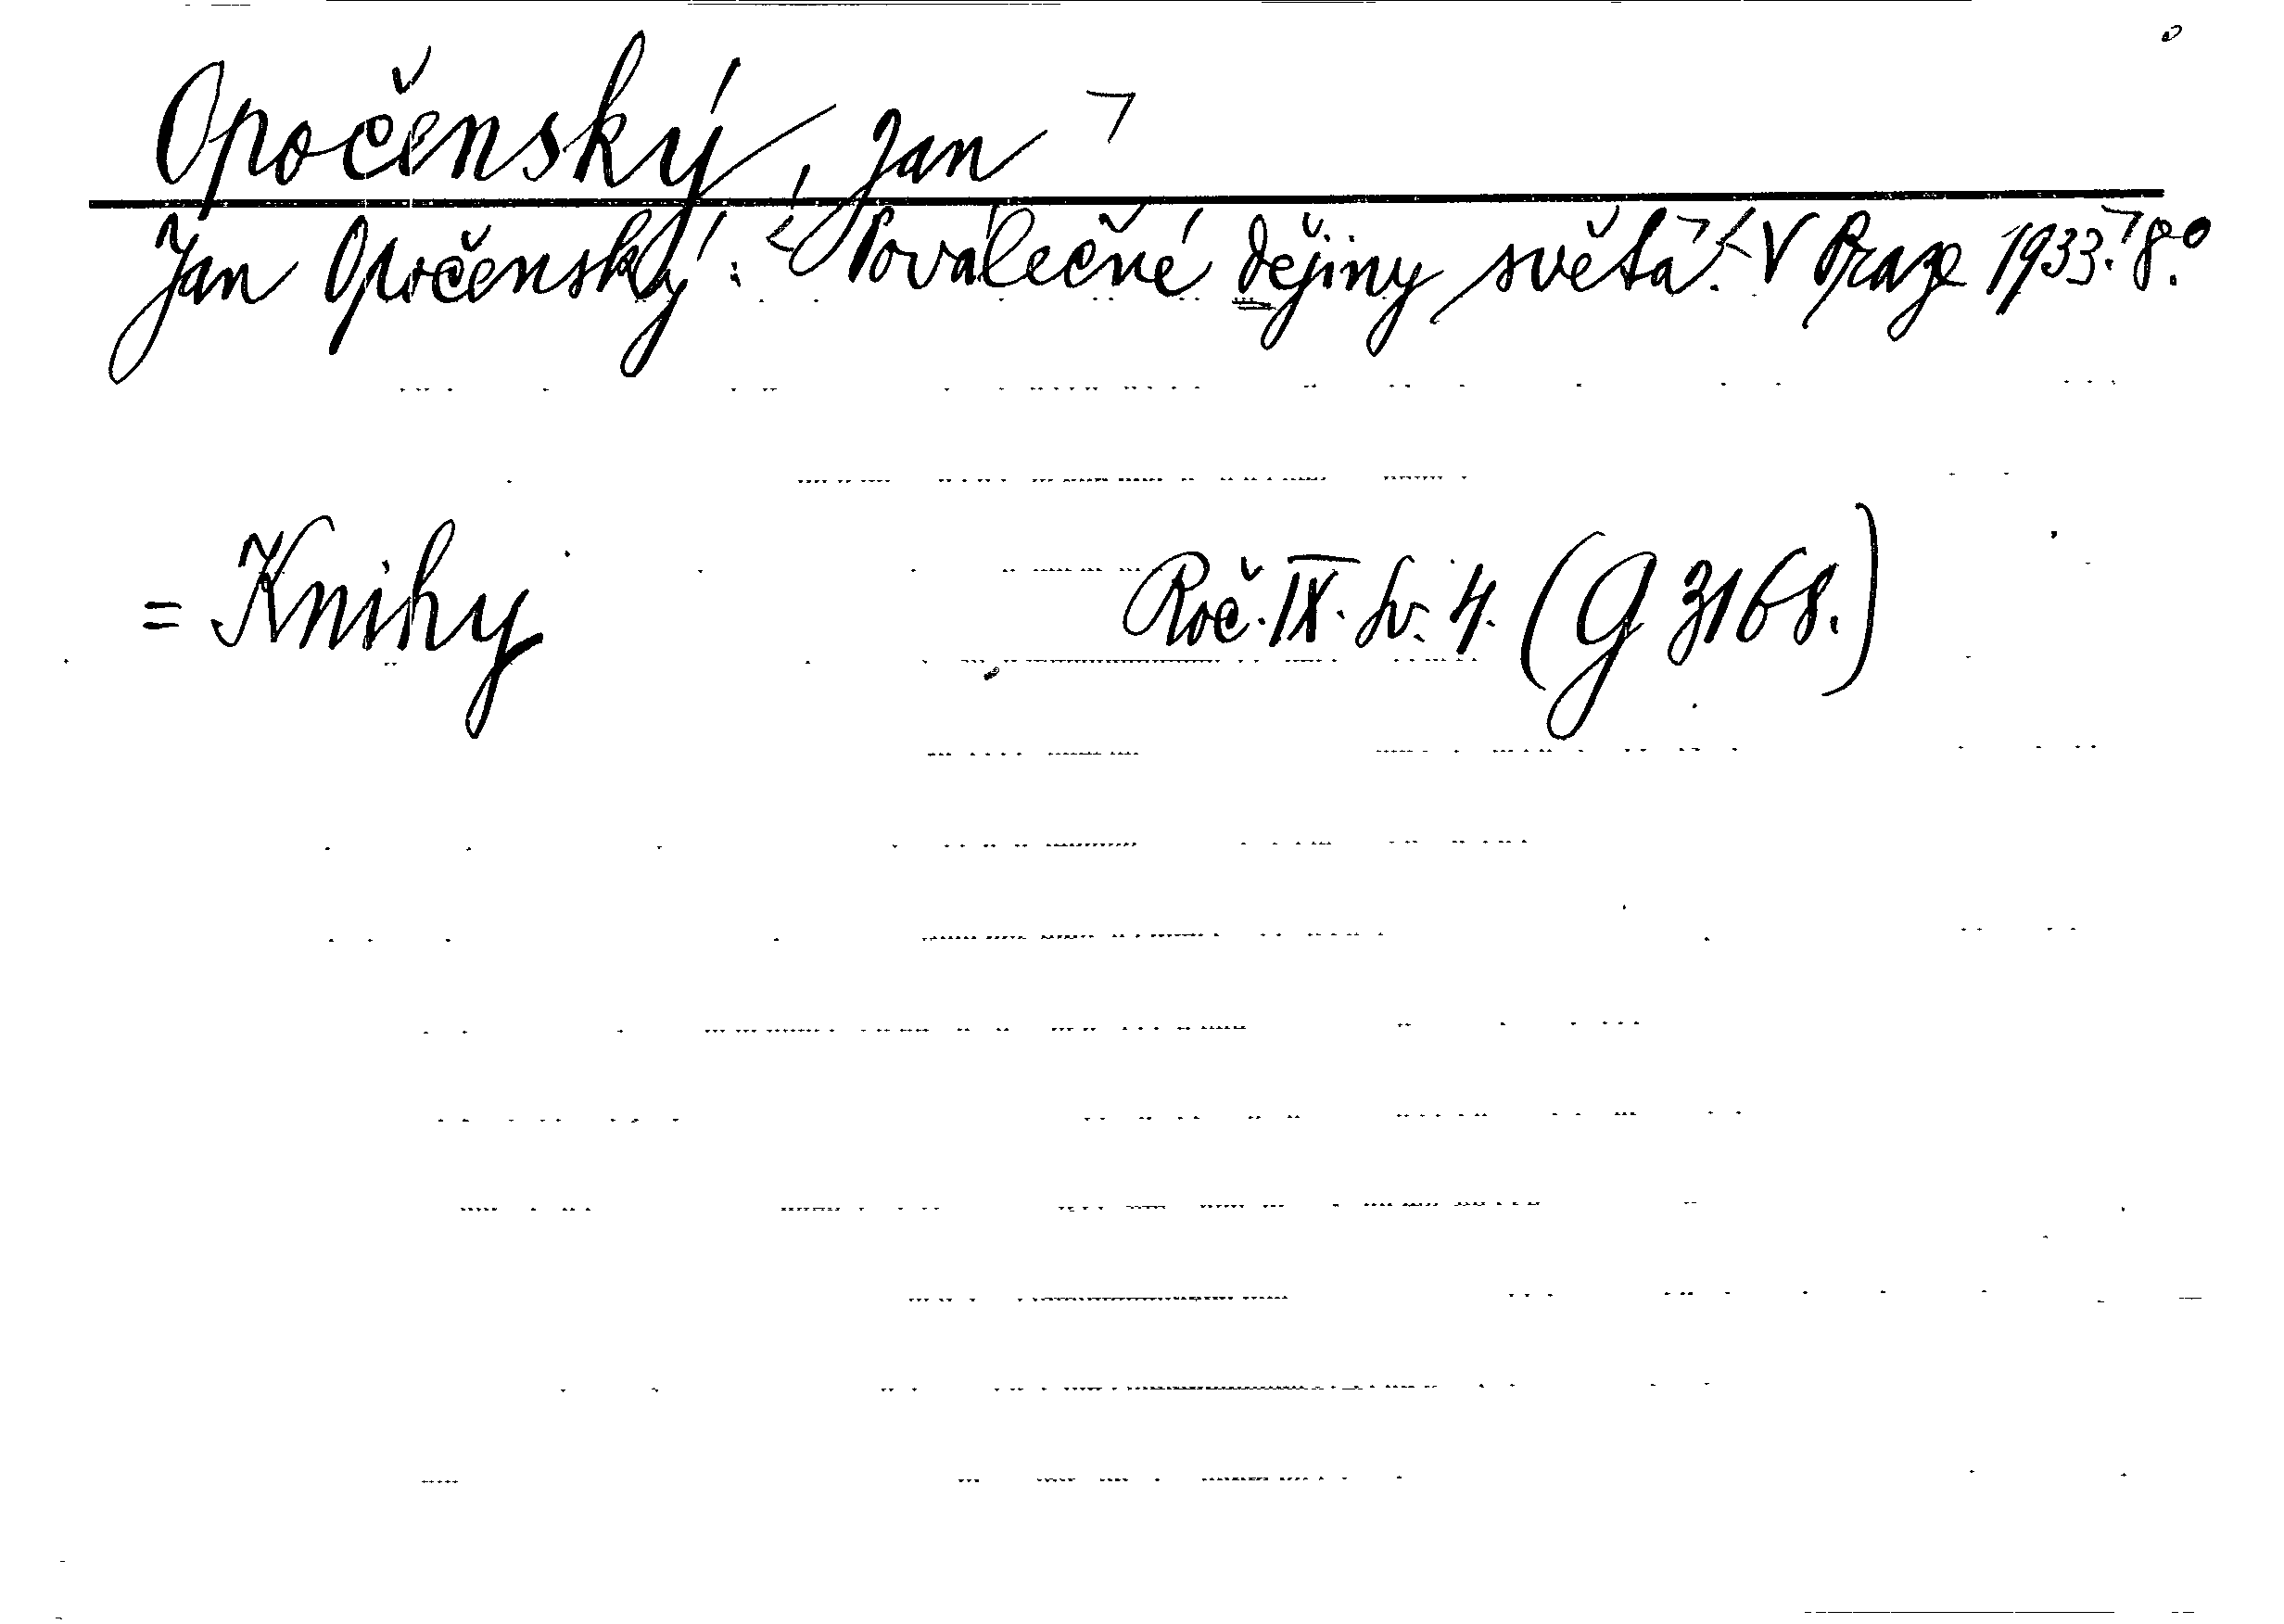 Opočenský, Jan
Jan Opočenský: Poválečné dějiny světa. V Praze 1933. 8.°
= Knihy Roč. IX. sv. 4. (G 3168.)